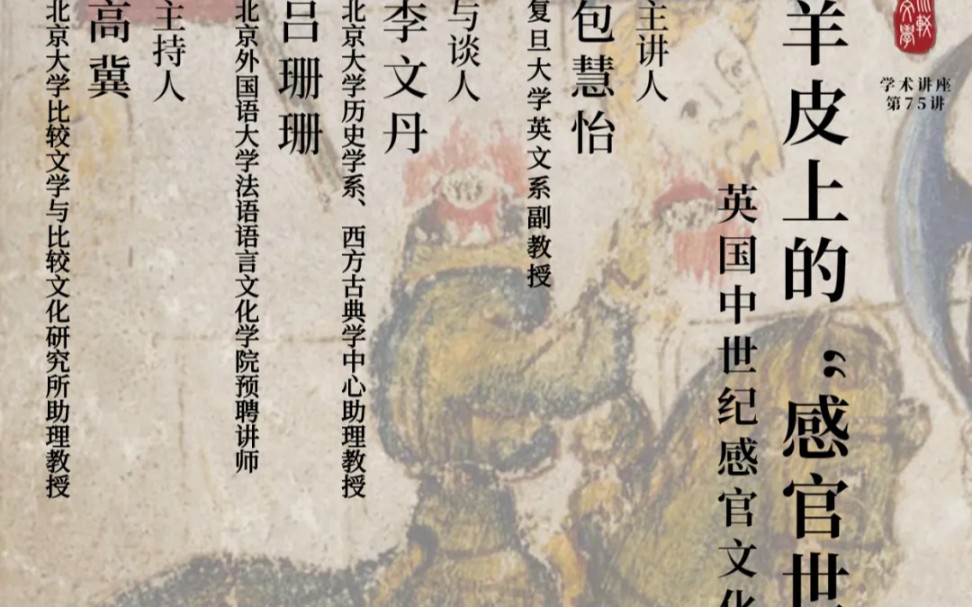 学术讲座
第75讲
羊皮上的“感官世
英国中世纪感官文化
主讲人
包慧怡
复旦大学英文系副教授
与谈人
李文丹
北京大学历史学系、西方古典学中心助理教授
吕珊珊
北京外国语大学法语语言文化学院预聘讲师
主持人
高冀
北京大学比较文学与比较文化研究所助理教授